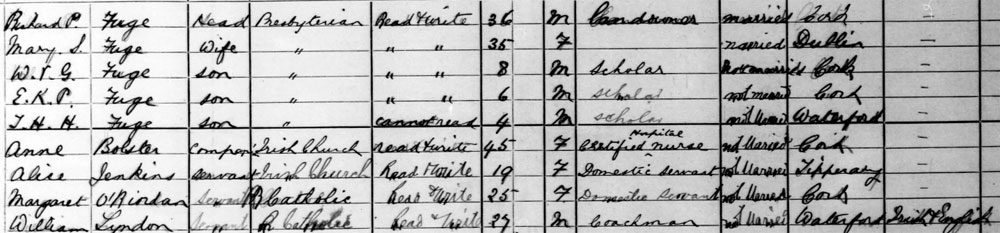 Richard P. Fuge Head Presbyterian Read & write 36 M Landowner married Cork
Mary. S. Fuge Wife " " " 35 F married Dublin –
W. V G. Fuge son " " " 8 M scholar Not married Cork –
E. K. P. Fuge son " " " 6 M scholar not married Cork –
T. H. H. Fuge son " cannot read 4 M scholar not Married Waterford –
Anne Bolster compan. Irish Church read & write 45 F Certified Hospital Nurse not Married Cork –
Alice Jenkins servant Irish Church Read & Write 19 F Domestic servant not Married Tipperary –
Margaret O'Riordan Servant R Catholic Read & Write 25 F Domestic Servant not Married Cork –
William Lyndon Servant R Catholic Read & Write 27 M Coachman not Married Waterford Irish & English